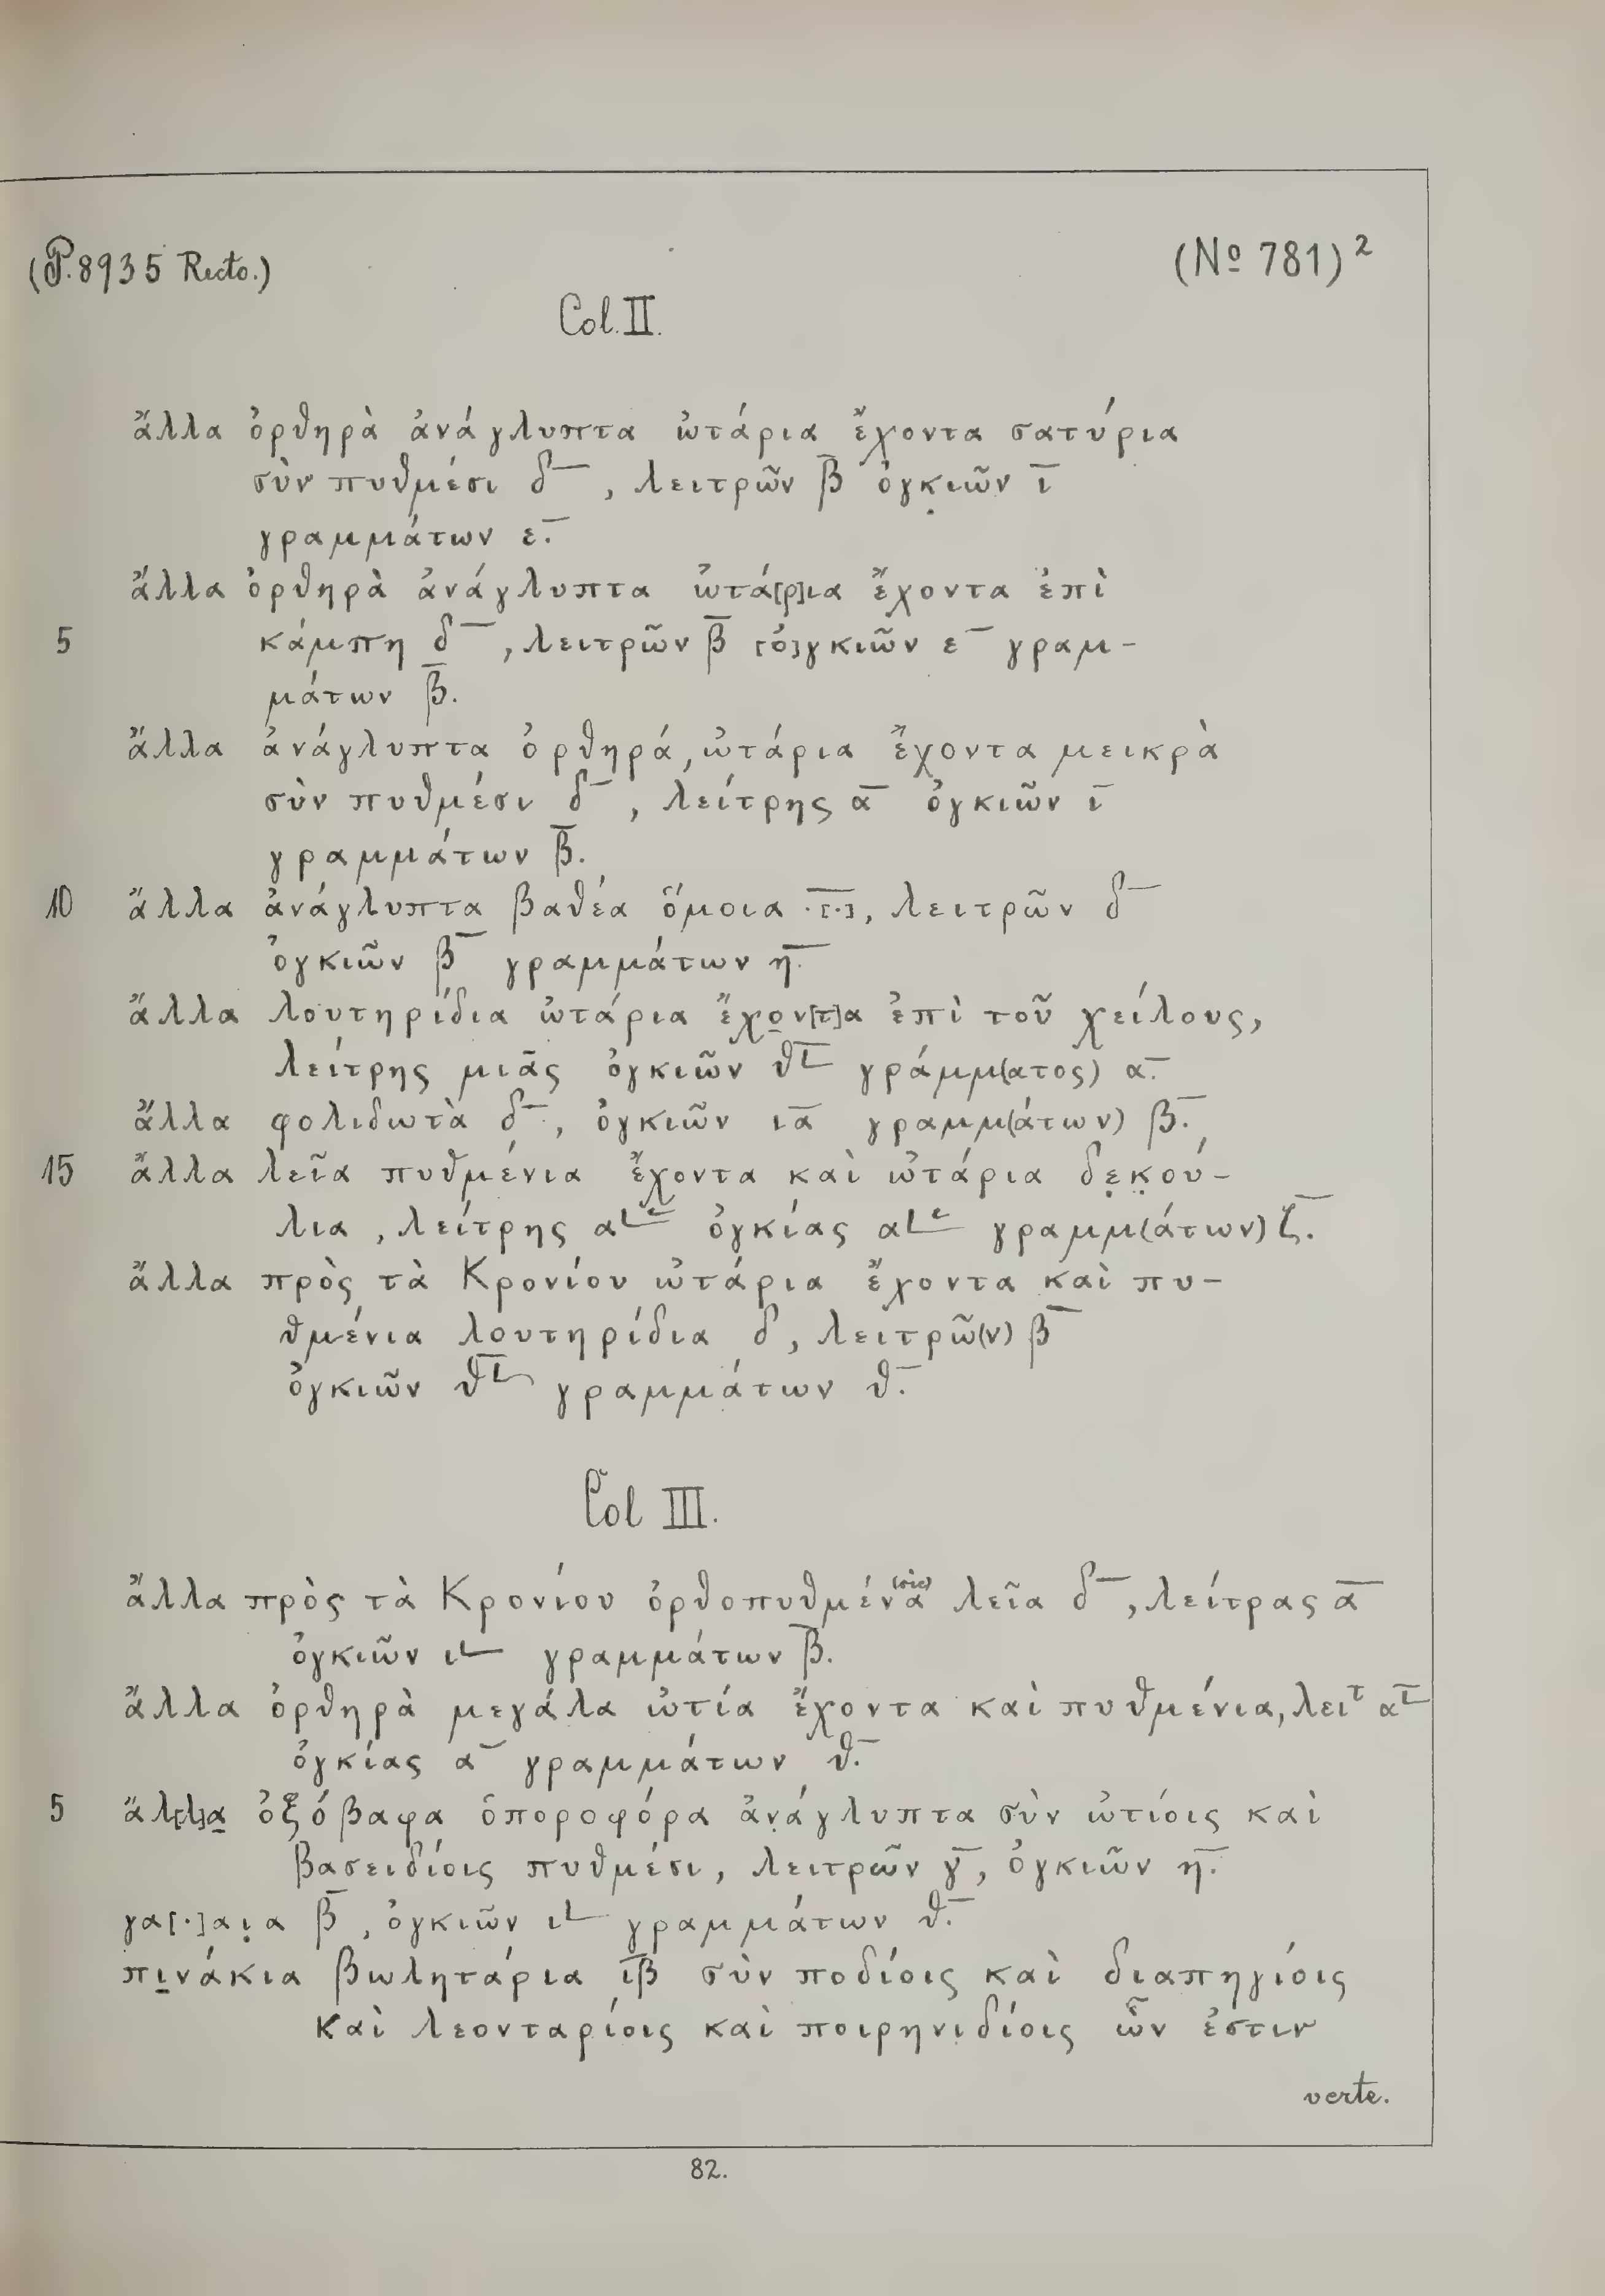 (P. 8935 Recto.)
(No 781)²
Col. II.
ἄλλα ὀρθηρὰ ἀνάγλυπτα ὠτάρια ἔχοντα σατύρια
σὺν πυθμέσι δ̅, λειτρῶν β̅ ὀγκιῶν ι̅
γραμμάτων ε̅.
ἄλλα ὀρθηρὰ ἀνάγλυπτα ὠτά[ρ]ια ἔχοντα ἐπὶ
5 κάμπη δ̅, λειτρῶν β̅ [ὀ]γκιῶν ε̅ γραμ-
μάτων β̅.
ἄλλα ἀνάγλυπτα ὀρθηρά, ὠτάρια ἔχοντα μεικρὰ
σὺν πυθμέσι δ̅, λείτρης α̅ ὀγκιῶν ι̅
γραμμάτων β̅.
10 ἄλλα ἀνάγλυπτα βαθέα ὅμοια ·[·], λειτρῶν δ̅
ὀγκιῶν β̅ γραμμάτων η̅.
ἄλλα λουτηρίδια ὠτάρια ἔχο̣ν[τ]α ἐπὶ τοῦ χείλους,
λείτρης μιᾶς ὀγκιῶν θ̅L γράμμ(ατος) α̅.
ἄλλα φολιδωτὰ δ̅, ὀγκιῶν ια̅ γραμμ(άτων) β̅.
15 ἄλλα λεῖα πυθμένια ἔχοντα καὶ ὠτάρια δε̣κ̣ού-
λια, λείτρης αL ὀγκίας αL γραμμ(άτων) ζ̅.
ἄλλα πρὸς τὰ Κρονίου ὠτάρια ἔχοντα καὶ πυ-
θμένια λουτηρίδια δ, λειτρῶ(ν) β̅
ὀγκιῶν θ̅L γραμμάτων θ̅.
Col III.
ἄλλα πρὸς τὰ Κρονίου ὀρθοπυθμένα (sic) λεῖα δ̅, λείτρας α̅
ὀγκιῶν ιL γραμμάτων β̅.
ἄλλα ὀρθηρὰ μεγάλα ὠτία ἔχοντα καὶ πυθμένια, λειτ α̅L
ὀγκίας α̅ γραμμάτων θ̅.
5 ἄλ[λ]α̣ ὀξόβαφα ὀποροφόρα ἀνάγλυπτα σὺν ὠτίοις καὶ
βασειδίοις πυθμέσι, λειτρῶν γ̅, ὀγκιῶν η̅.
γα[·]αι̣α β̅, ὀγκιῶν ιL γραμμάτων θ̅.
πι̣νάκια βωλητάρια ι̅β̅ σὺν ποδίοις καὶ διαπηγίοις
καὶ λεονταρίοις καὶ ποιρηνιδίοις ὧν ἐστιν
verte.
82.